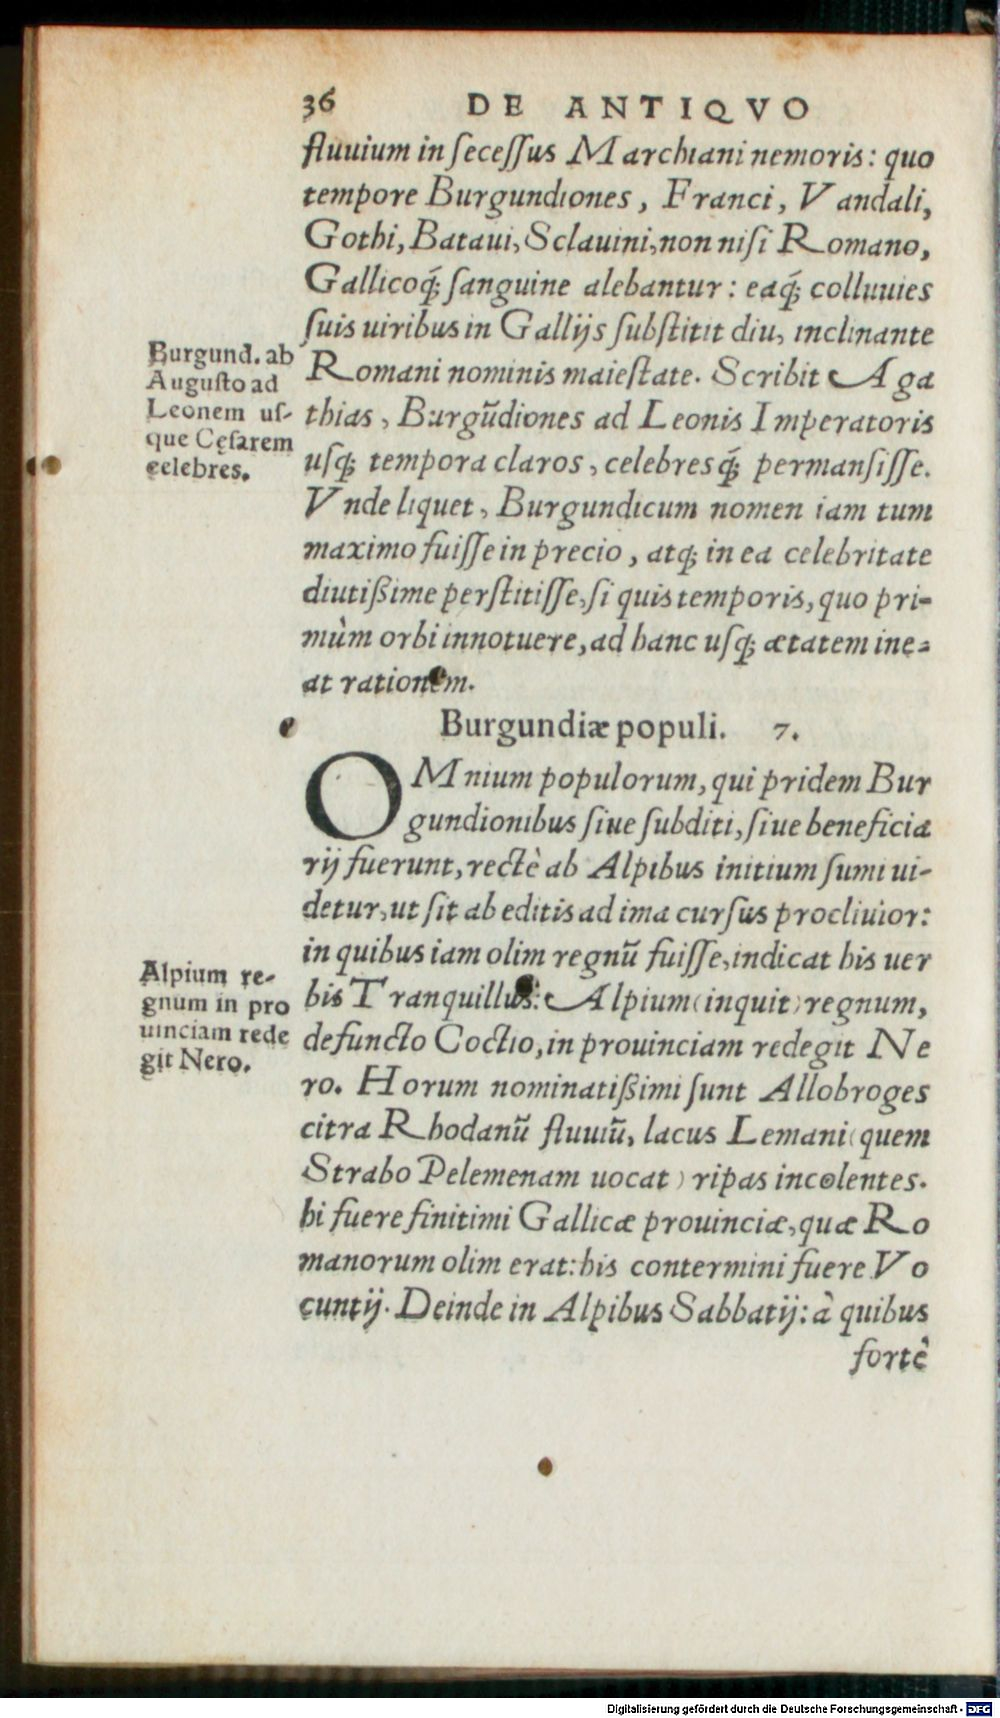 36 DE ANTIQVO
fluuium in ſeceſſus Marchiani nemoris: quo
tempore Burgundiones, Franci, Vandali,
Gothi, Bataui, Sclauini, non niſi Romano,
Gallicoq́; ſanguine alebantur: eaq́; colluuies
ſuis uiribus in Gallijs ſubſtitit diu, inclinante
Romani nominis maieſtate. Scribit Aga
thias, Burgūdiones ad Leonis Imperatoris
uſq; tempora claros, celebresq́; permanſiſſe.
Vnde liquet, Burgundicum nomen iam tum
maximo fuiſſe in precio, atq; in ea celebritate
diutißime perſtitiſſe, ſi quis temporis, quo pri-
mùm orbi innotuere, ad hanc uſq; ætatem ine-
at rationem.
Burgund. ab
Auguſto ad
Leonem uſ-
que Cęſarem
celebres.
Burgundiæ populi. 7.
OMnium populorum, qui pridem Bur
gundionibus ſiue ſubditi, ſiue beneficia
rij fuerunt, rectè ab Alpibus initium ſumi ui-
detur, ut ſit ab editis ad ima curſus procliuior:
in quibus iam olim regnū fuiſſe, indicat his uer
bis Tranquillus: Alpium (inquit) regnum,
defuncto Coctio, in prouinciam redegit Ne
ro. Horum nominatißimi ſunt Allobroges
citra Rhodanū fluuiū, lacus Lemani (quem
Strabo Pelemenam uocat) ripas incolentes.
hi fuere finitimi Gallicæ prouinciæ, quæ Ro
manorum olim erat: his contermini fuere Vo
cuntij. Deinde in Alpibus Sabbatij: à quibus
fortè
Alpium re-
gnum in pro
uinciam rede
git Nero.
Digitalisierung gefördert durch die Deutsche Forschungsgemeinschaft - DFG